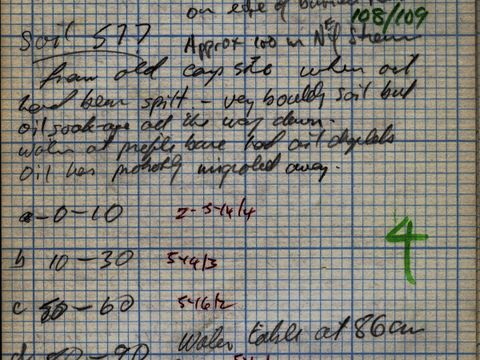 on edge of
108/109
Soil 577 Approx 100 m NE of stream
from old camp site when oil
had been spilt - very bouldy soil but
oil soakage all the way down.
Water at profile base had oil droplets
Oil has probably migrated away.
a - 0-10 2-5-Y4/4
b 10-30 5Y4/3
4
c 30-60 5Y6/2
Water table at 86cm
d -90